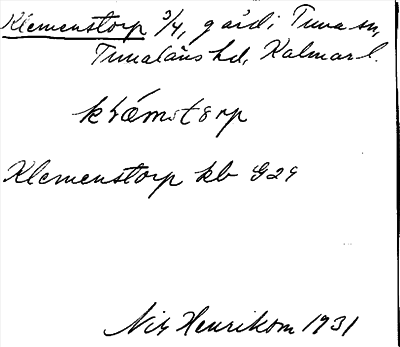 Klemenstorp 3/4, gård i Tuna sn,
Tunaläns hd, Kalmar l.
Klemenstorp kb G29
Nils Henrikson 1931